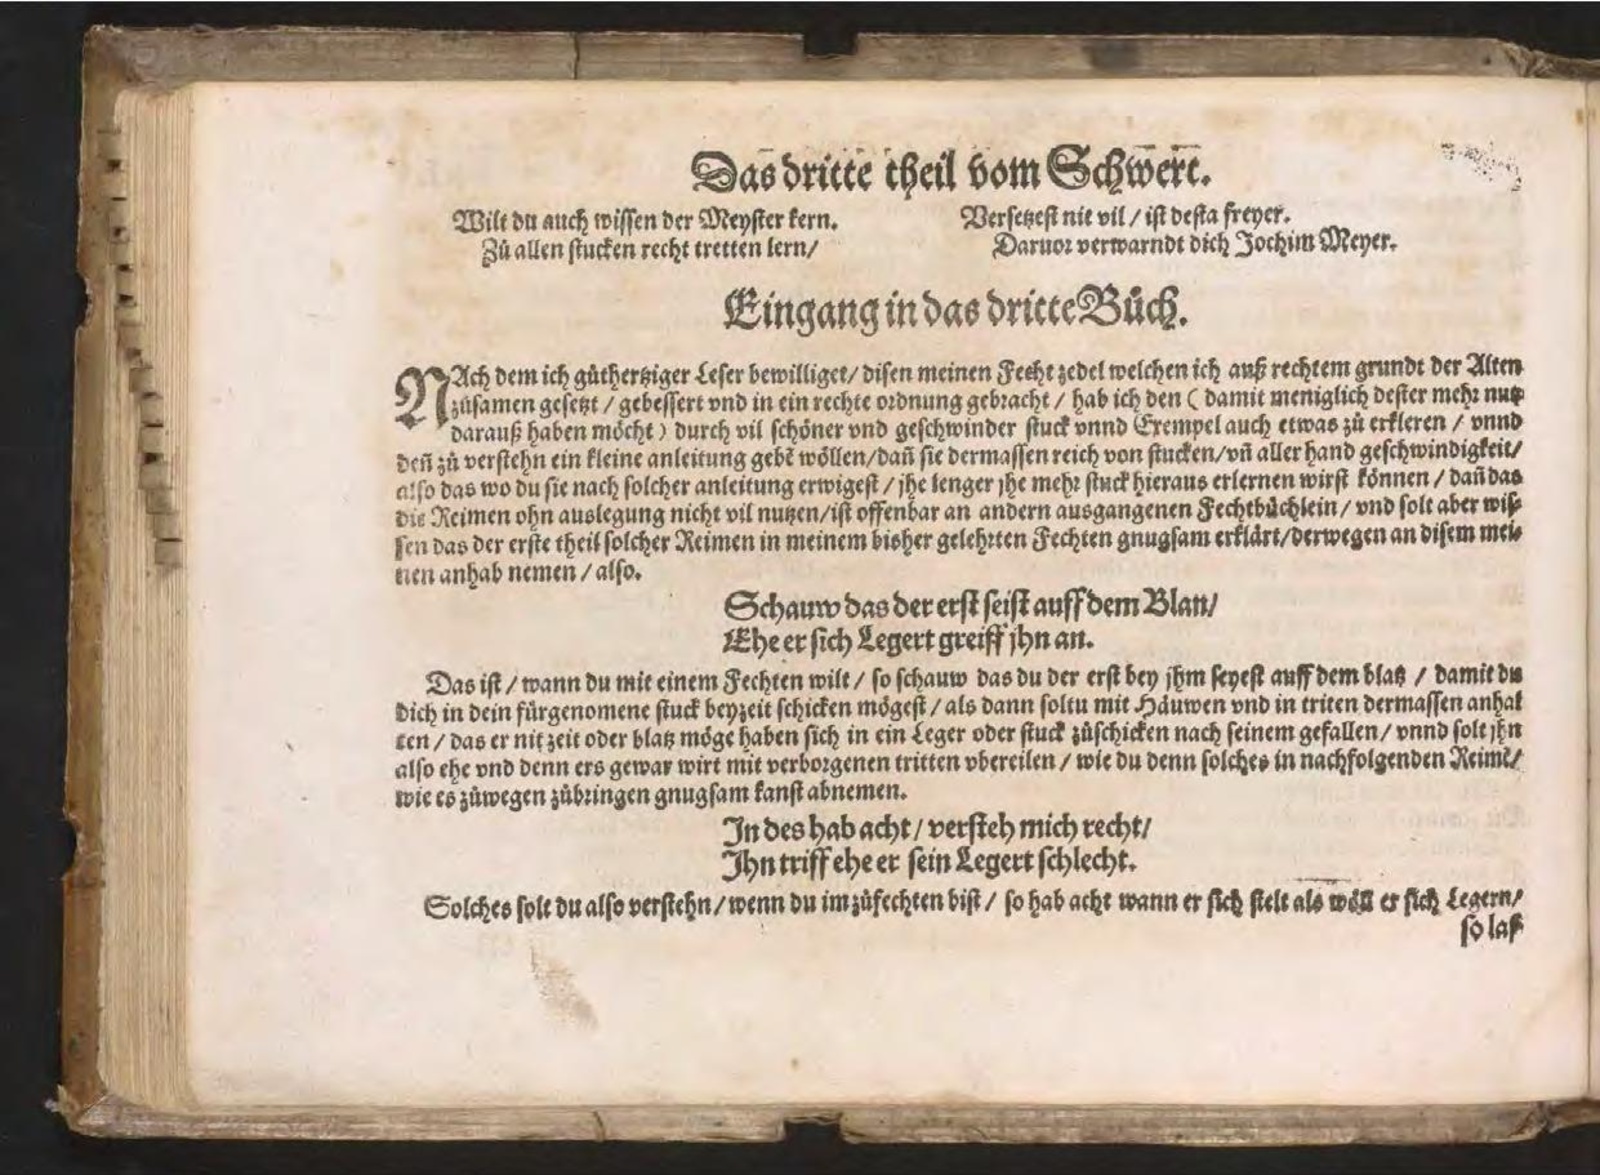 Das dritte theil vom Schwert.
Wilt du auch wissen der Meyster kern.
Zů allen stucken recht tretten lern/
Versetzest nit vil / ist desta freyer.
Daruor verwarndt dich Jochim Meyer.
Eingang in das dritte Bůch.
NAch dem ich gůthertziger Leser bewilliget/ disen meinen Fecht zedel welchen ich auß rechtem grundt der Alten
zůsamen gesetzt / gebessert vnd in ein rechte ordnung gebracht / hab ich den ( damit meniglich dester mehr nutz
darauß haben möcht ) durch vil schöner vnd geschwinder stuck vnnd Exempel auch etwas zů erkleren / vnnd
deñ zů verstehn ein kleine anleitung gebẽ wöllen/ dañ sie dermassen reich von stucken/ vñ aller hand geschwindigkeit/
also das wo du sie nach solcher anleitung erwigest / jhe lenger jhe mehr stuck hieraus erlernen wirst können / dañ das
die Reimen ohn auslegung nicht vil nutzen/ ist offenbar an andern ausgangenen Fechtbůchlein / vnd solt aber wis-
sen das der erste theil solcher Reimen in meinem bisher gelehrten Fechten gnugsam erklärt/ derwegen an disem mei-
nen anhab nemen / also.
Schauw das der erst seist auff dem Blan/
Ehe er sich Legert greiff jhn an.
Das ist / wann du mit einem Fechten wilt / so schauw das du der erst bey jhm seyest auff dem blatz / damit du
dich in dein fürgenomene stuck beyzeit schicken mögest / als dann soltu mit Häuwen vnd in triten dermassen anhal
ten / das er nit zeit oder blatz möge haben sich in ein Leger oder stuck zůschicken nach seinem gefallen / vnnd solt jhn
also ehe vnd denn ers gewar wirt mit verborgenen tritten vbereilen / wie du denn solches in nachfolgenden Reimẽ/
wie es zůwegen zůbringen gnugsam kanst abnemen.
In des hab acht / versteh mich recht/
Ihn triff ehe er sein Legert schlecht.
Solches solt du also verstehn / wenn du im zůfechten bist / so hab acht wann er sich stelt als wöll er sich Legern/
so laß